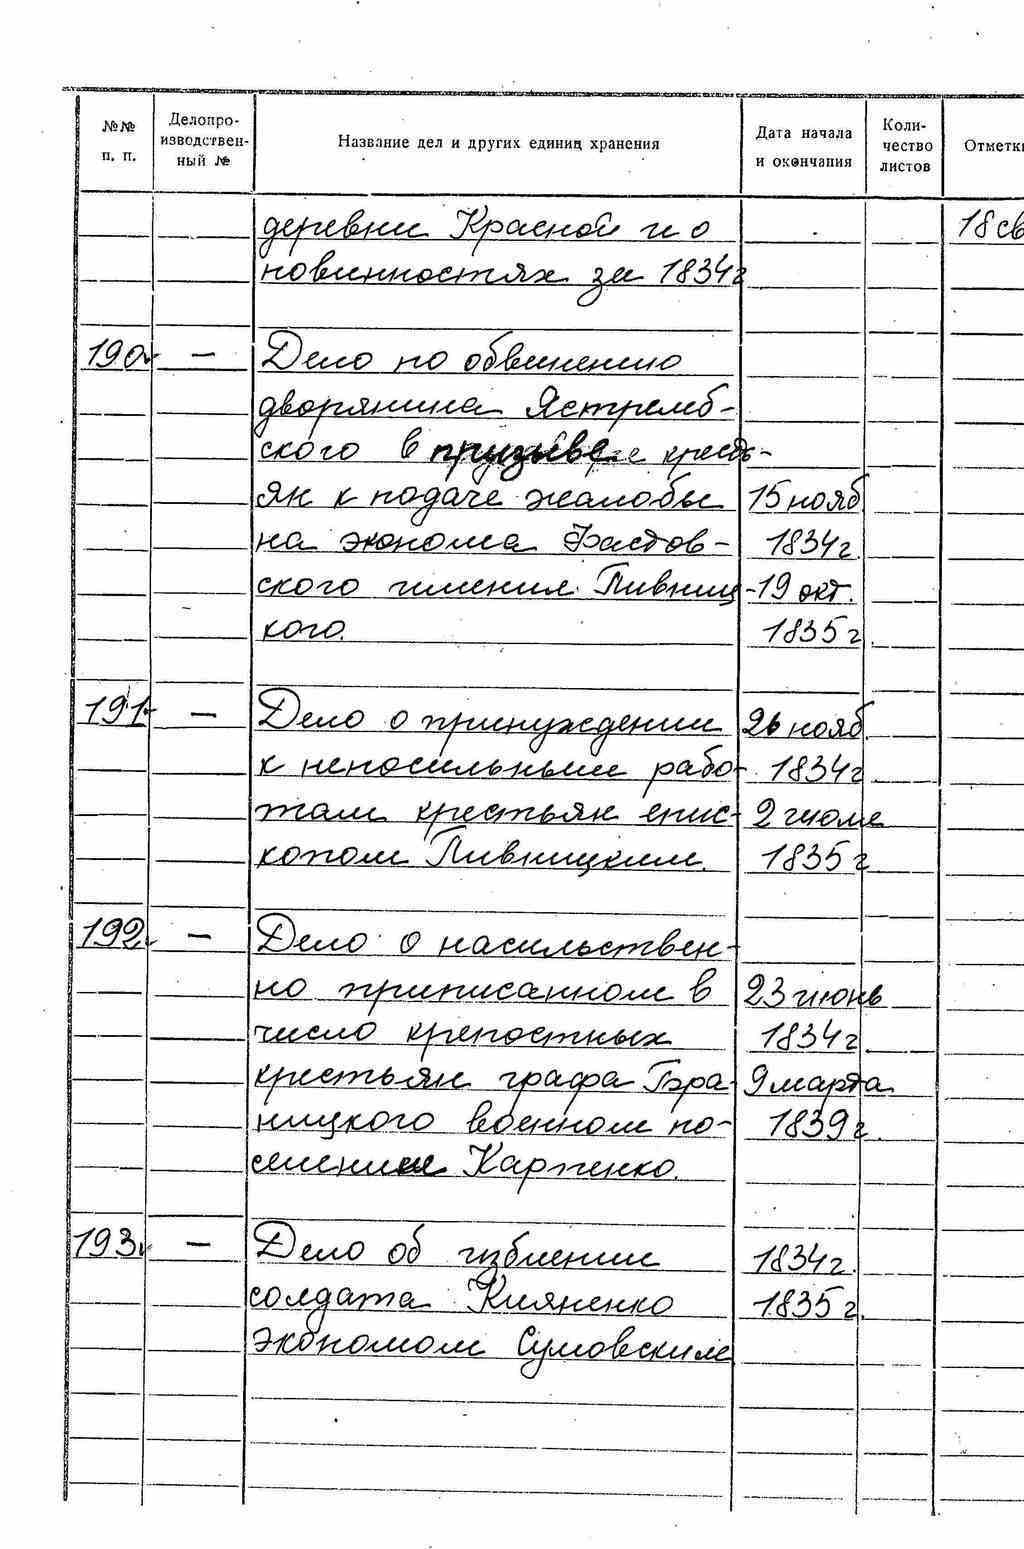 №№ п. п. Делопро-изводствен-ный № Название дел и других единиц хранения Дата начала и окончания Коли-чество листов Отметки
деревни Красной и о 18 св
повинностях за 1834г
190. — Дело по обвинению
дворянина Ястремб-
ского в призыве кресть-
ян к подаче жалобы 15 нояб
на эконома Фастов- 1834г.
ского имения Пивниц- 19 окт.
кого. 1835г.
191. — Дело о принуждении 26 нояб.
к непосильным рабо- 1834г
там крестьян епис- 2 июля
копом Пивницким. 1835г
192. — Дело о насильствен-
но приписанном в 23 июнь
число крепостных 1834г.
крестьян графа Бра- 9 марта
ницкого военном по- 1839г.
селенце Карпенко.
193. — Дело об избиении 1834г.
солдата Кияненко 1835г.
экономом Сумовским